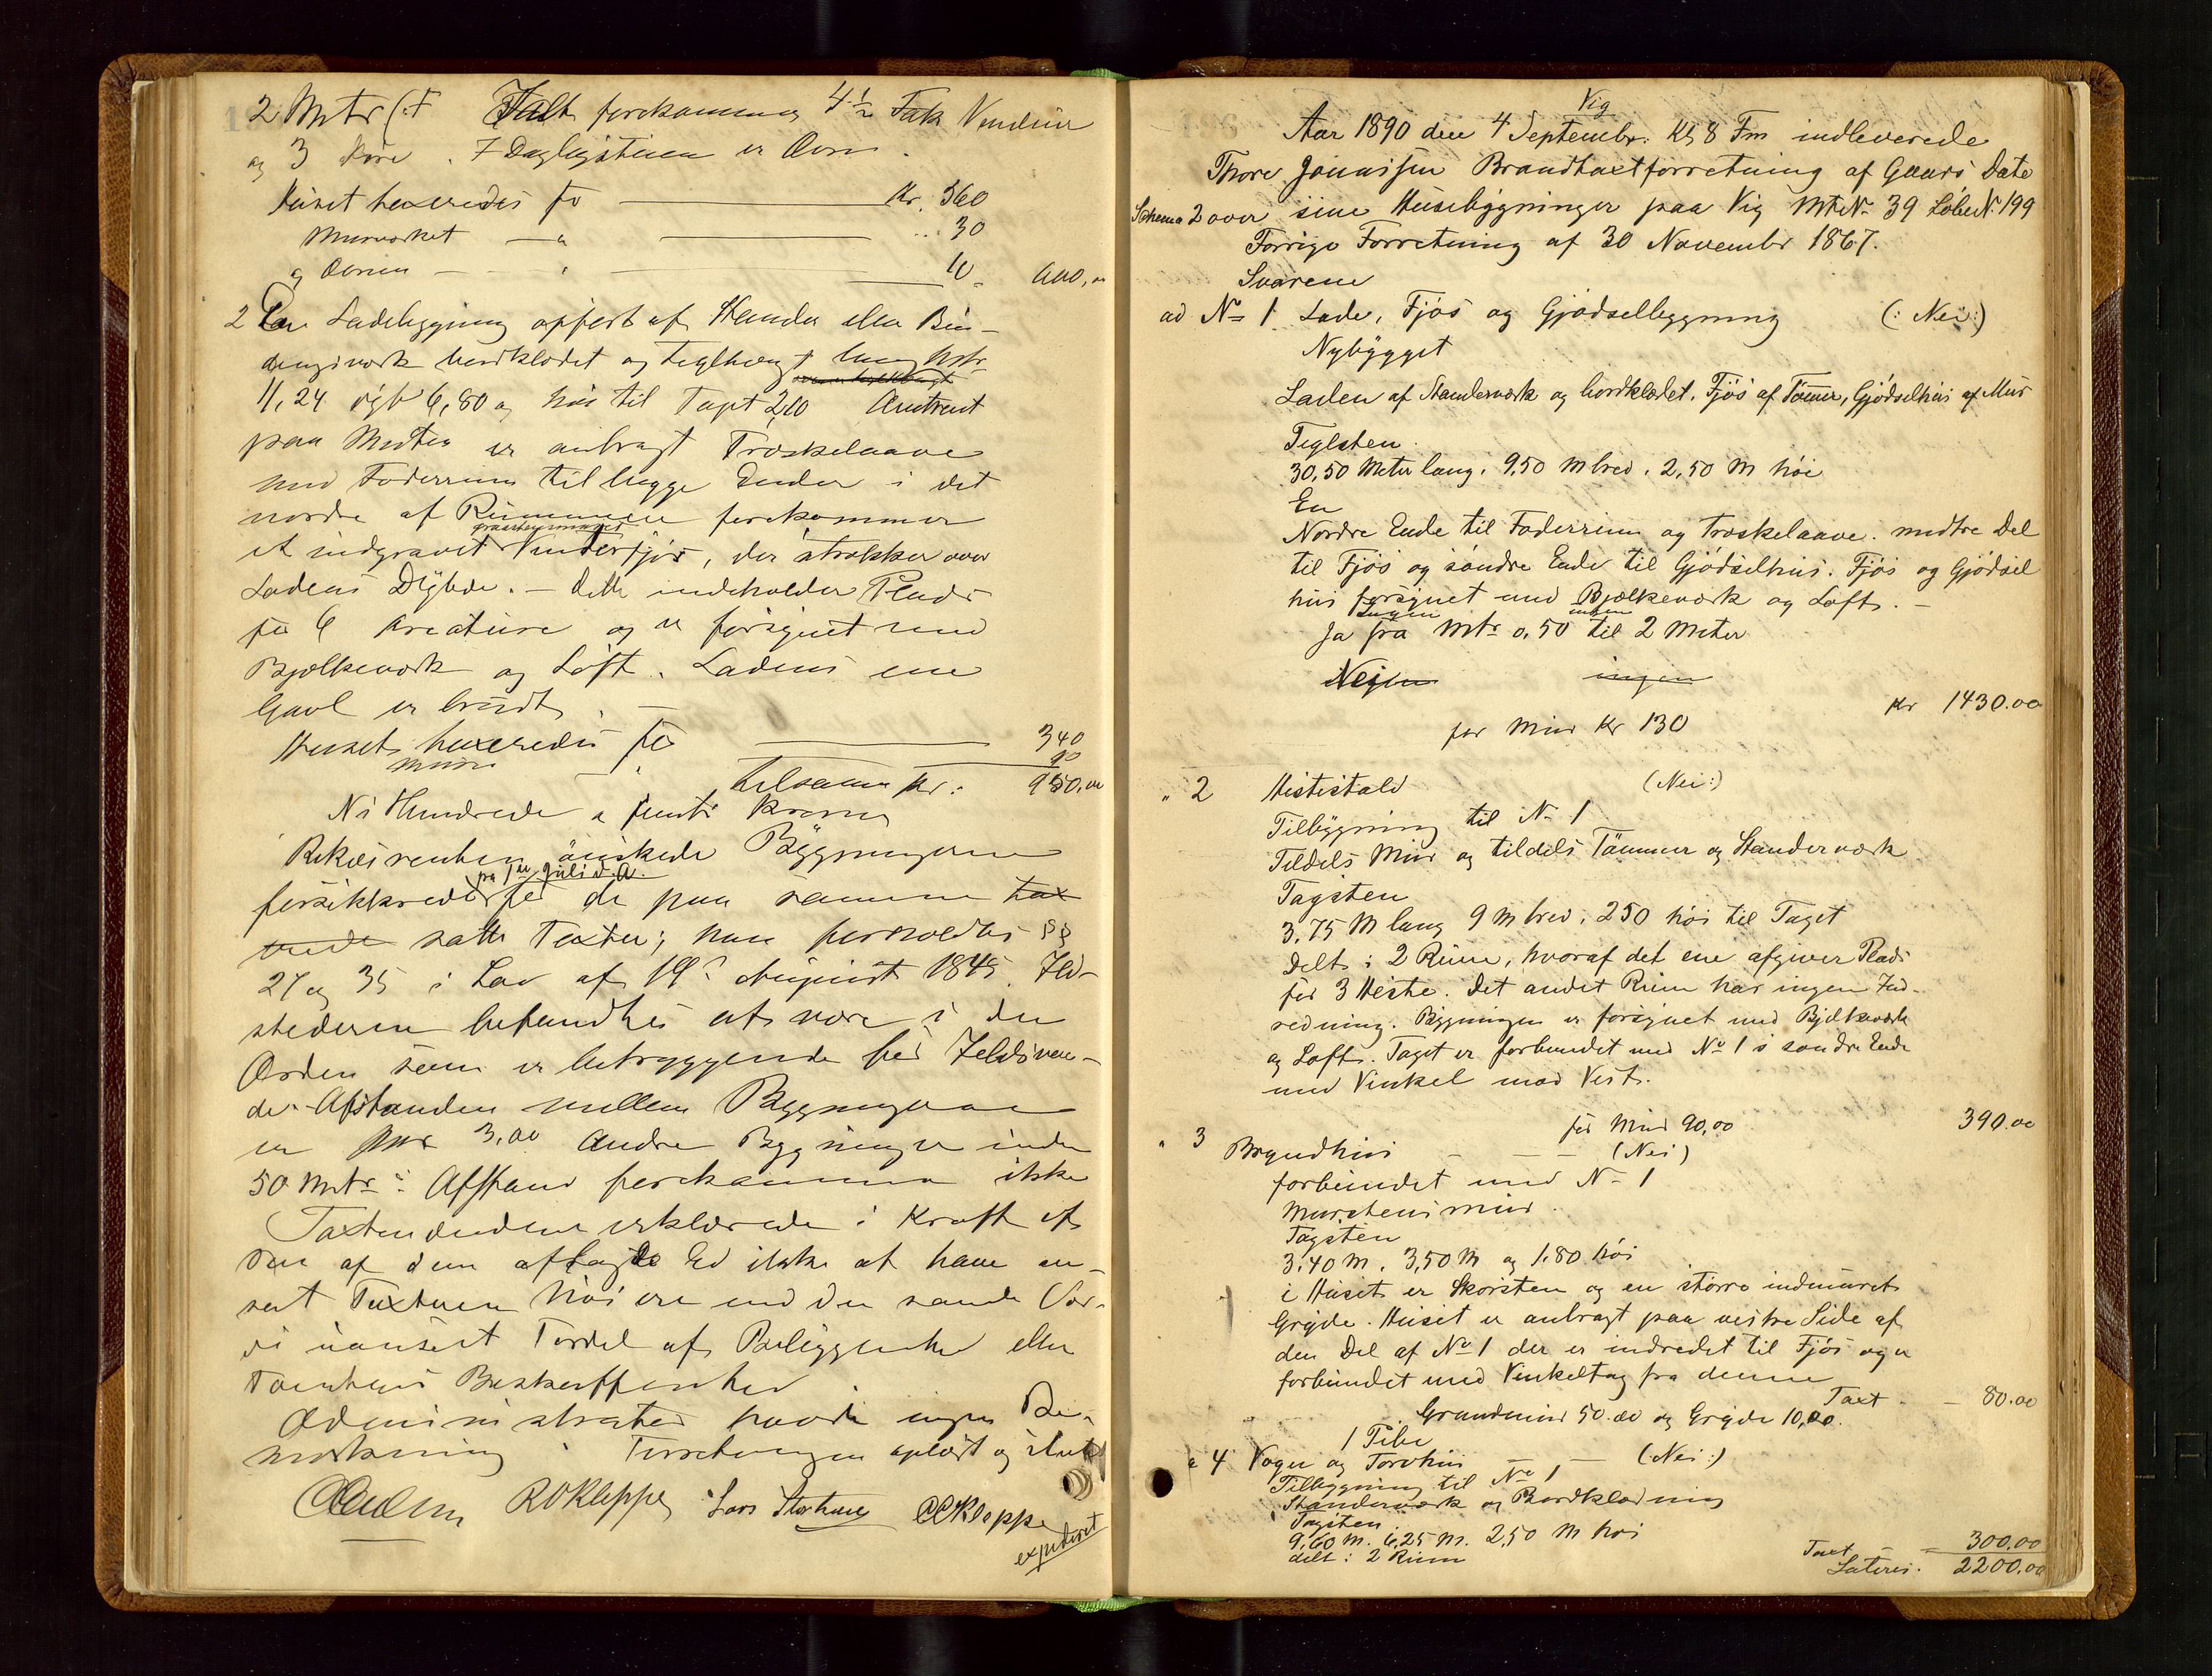 2 Mtr (: F Ialt forekommer 4 1/2 Fak Vinduer
og 3 Döre. I Dagligstuen er Ovn.
Huset taxeredes for Kr. 560
Murværket — " — 30
og Ovnen — " — 10 600,00
2 En Ladebygning opfört af Stender eller Bin-
dingsværk bordklædt og teglhængt lang Mtr
11,24 vidt 6,80 og höi til Taget 2,10 Omtrent
paa Midten er anbragt Træskelaave
med Foderrum til begge Ender i det
nordre af Rummene forekommer
et indgravet graastensmuret Vinterfjös, der strækker over
Ladens Dybde. — Dette indeholder Plads
for 6 Kreature og er forsynet med
Bjælkeværk og Loft. Ladens ene
Gavl er brudt. —
Huset taxeredes for 340
Muren — " — 10
tilsammen Kr. 950,00
Ni Hundrede og femti Kroner
Rekvirenten önskede Bygningerne
forsikkrede fra 1ste Juli d. A. for de paa samme
satte Taxter; han foreholdtes §§
27 og 35 i Lov af 19de August 1845. Ild-
stederne befandtes at være i den
Orden som er betryggende for Ildsvaa-
de. Afstanden mellem Bygningerne
er Mtr 3,00 Andre Bygninger inden
50 Mtrs Afstand forekommer ikke
Taxtmændene erklærede i Kraft af
den af dem aflagte Ed ikke at have an-
sat Taxten höiere end den sande Vær-
di uanseet Fordel af Beliggenhed eller
Tomtens Beskaffenhed
Administrator havde ingen Be-
mærkning. Forretningen oplæst og sluttet
R O Kleppe Lars Storhaug O O Kleppe
expederet
Vig
Aar 1890 den 4 Septembr. Kl 8 Fm indleverede
Thore Jonassen Brandtaxtforretning af Gaars Dato
Schema 2 over sine Husebygninger paa Vig MtrNo 39 LöbeN: 199
Forrige Forretning af 30 Novembr 1867.
Svarene
ad No 1 Lade, Fjös og Gjödselbygning (: Nei :)
Nybygget
Laden af Stenderværk og bordklædet. Fjös af Tömmer, Gjödselhus af Mur
Teglsten.
30,50 Meter lang. 9,50 M bred. 2,50 M höi
En
Nordre Ende til Foderrum og Træskelaave. midtre Del
til Fjös og söndre Ende til Gjödselhus. Fjös og Gjödsel
hus forsynet med Bjælkeværk og Loft. —
Ingen ingen
Ja fra Mtr 0,50 til 2 Meter
Nei ingen
Kr 1430.00
for Mur Kr 130
" 2 Hestestald (Nei :)
Tilbygning til No 1
Tildels Mur og tildels Tömmer og Stenderværk
Tagsten
3.75 M lang 9 M bred. 2.50 höi til Taget
Delt i 2 Rum, hvoraf det ene afgiver Plads
for 3 Heste. Det andet Rum har ingen Ind-
redning. Bygningen er forsynet med Bjelkeværk
og Loft. Taget er forbundet med No 1 s söndre Ende
med Vinkel mod Vest.
for Mur 90,00 390.00
" 3 Bryndhus — — — (Nei)
forbundet med No 1
Murstensmur.
Tagsten
3.40 M. 3,50 M og 1.80 höi
i Huset er Skorsten og en större indmuret
Gryde. Huset er anbragt paa vestre Side af
den Del af No 1 der er indredet til Fjös og er
forbundet med Vinkeltag fra denne
Taxt — 80.00
Grundmur 50.00 og Gryde 10,00.
1 Pibe
" 4 Vogn og Torvhus — — (Nei :)
Tilbygning til No 1
Stenderværk og Bordklædning
Tagsten.
9,60 M. 6,25 M. 2,50 M höi
delt i 2 Rum
Taxt — 300.00
Lateris. 2200.00